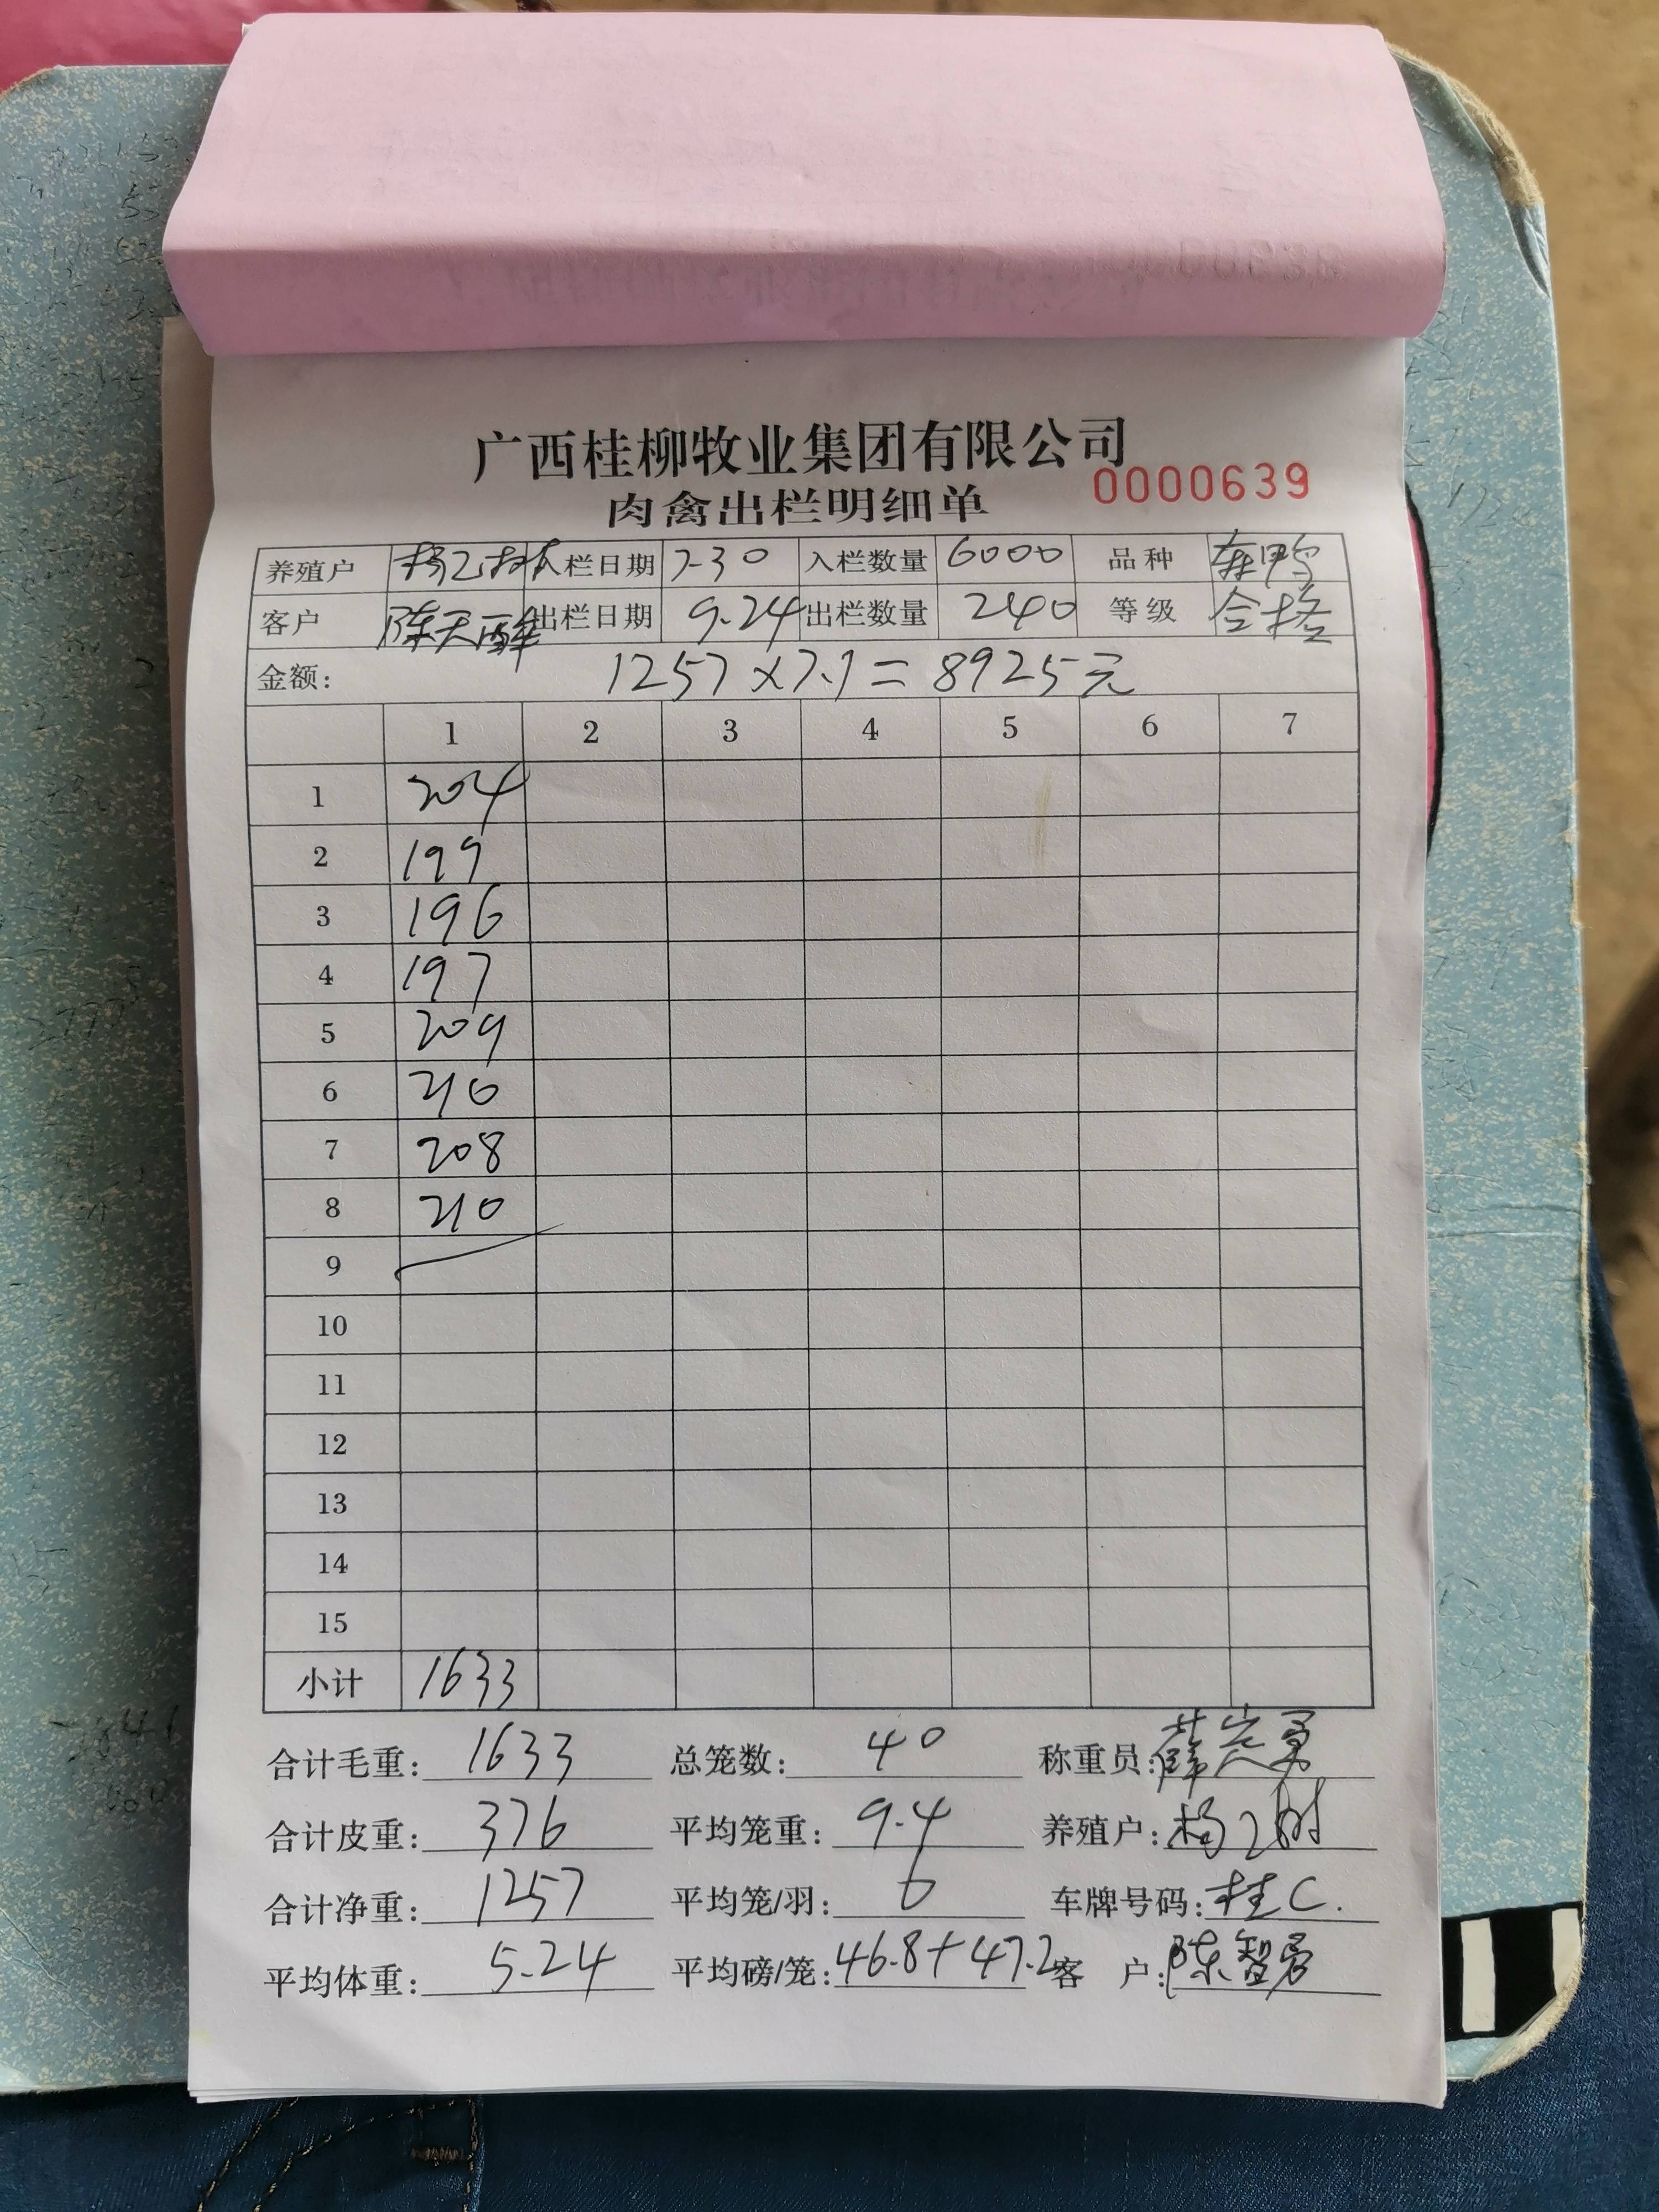 广西桂柳牧业集团有限公司
肉禽出栏明细单 0000639
养殖户 杨乙树 入栏日期 7-30 入栏数量 6000 品种
客户 陈天醉 出栏日期 9.24 出栏数量 240 等级 合格
金额: 1257×7.1=8925元
1 2 3 4 5 6 7
1 204
2 199
3 196
4 197
5 209
6 210
7 208
8 210
9
10
11
12
13
14
15
小计 1633
合计毛重: 1633 总笼数: 40 称重员:
合计皮重: 376 平均笼重: 9.4 养殖户: 杨乙树
合计净重: 1257 平均笼/羽: 6 车牌号码: 桂C.
平均体重: 5.24 平均磅/笼: 46.8+47.2 客 户: 陈智勇